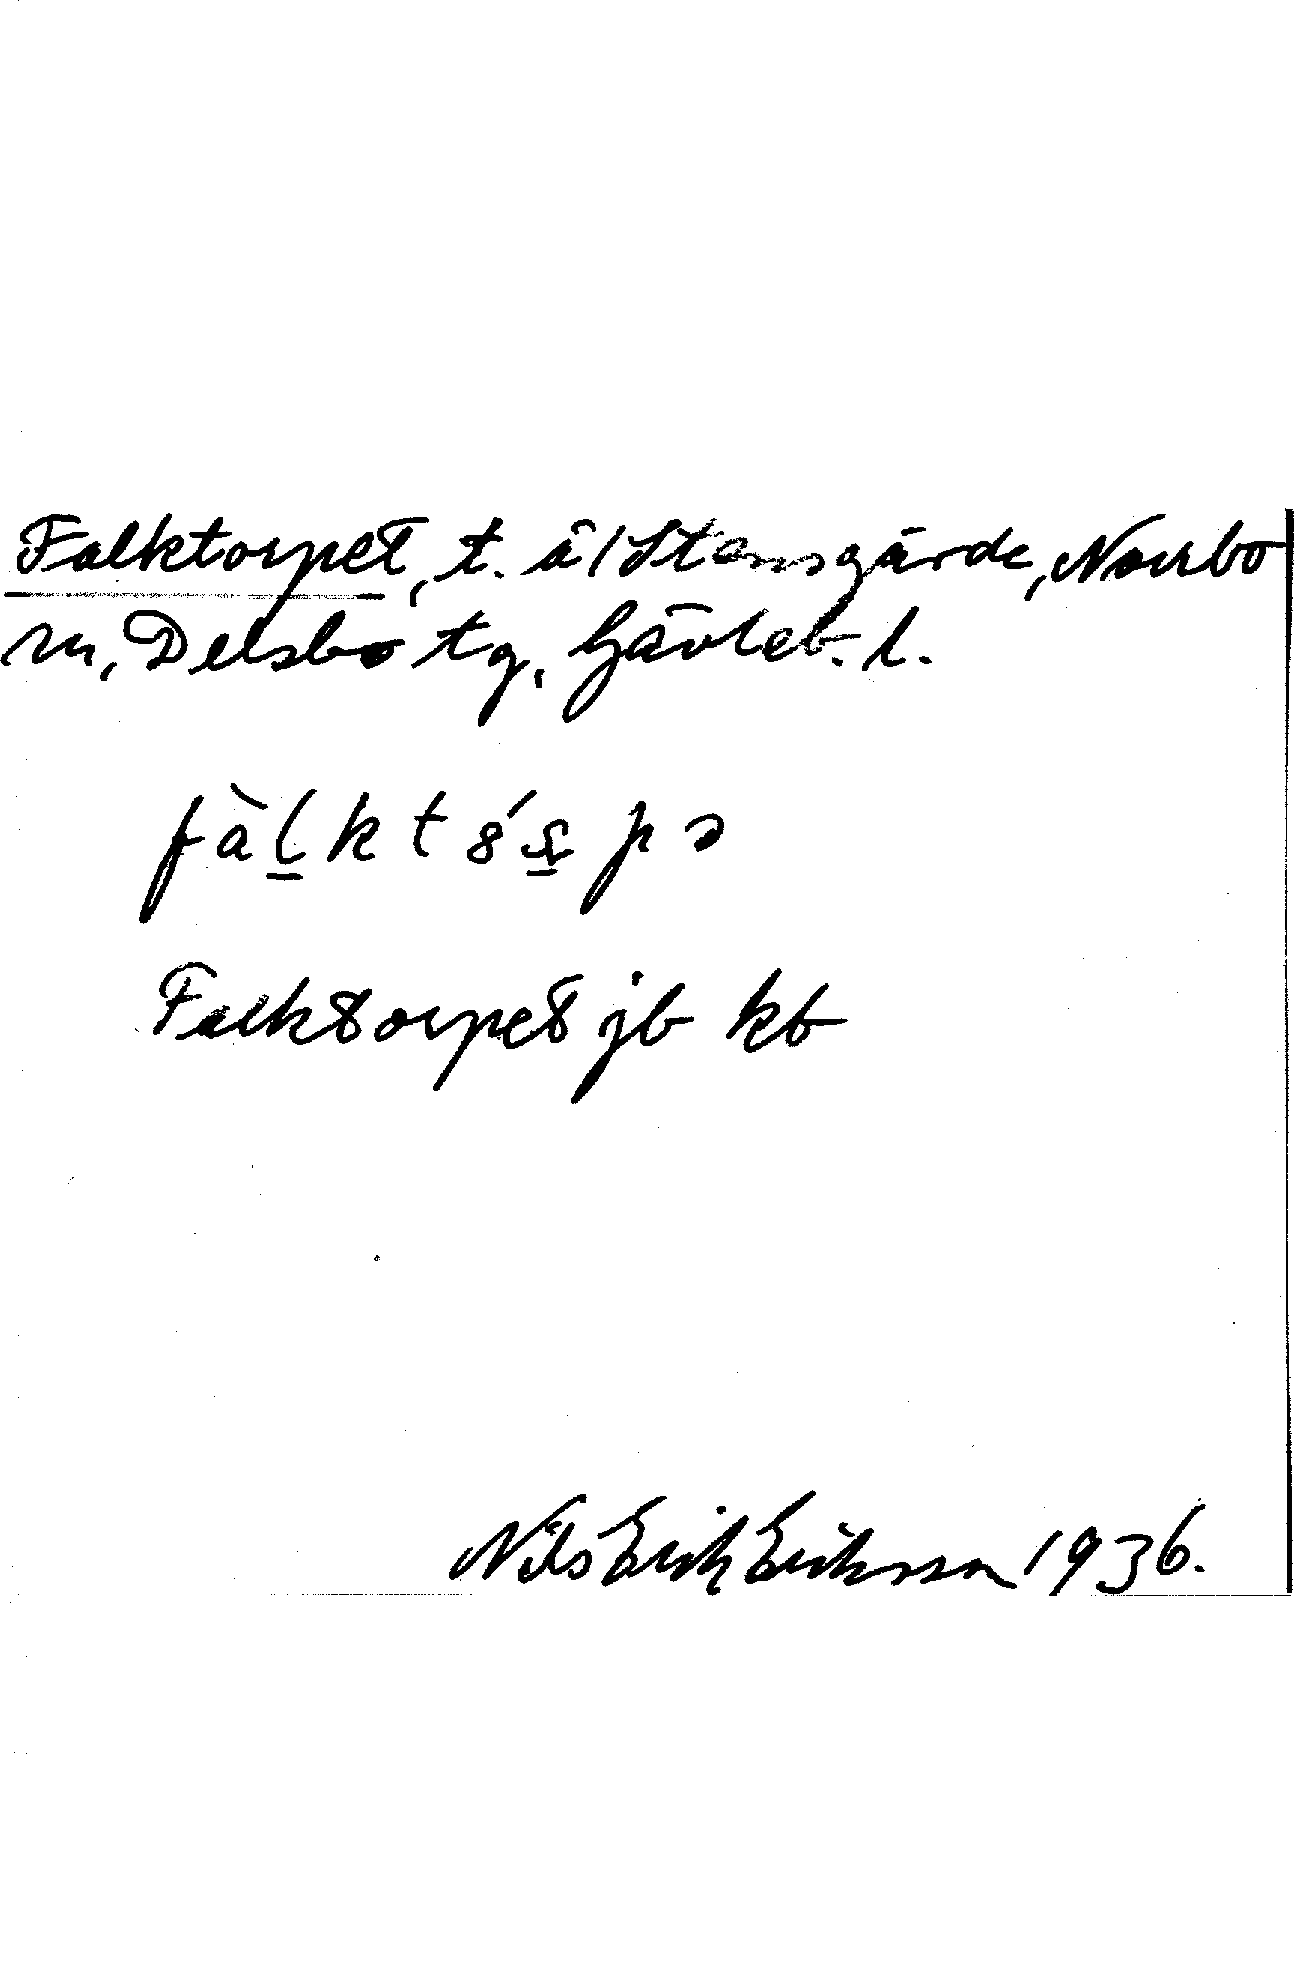 Falktorpet, t. å 1 Stensgärde, Norrbo
sn, Delsbo tg, Gävleb. l.
fàl̲kt8́s̲pə
Falktorpet jb kb
Nils Erik Eriksson 1936.